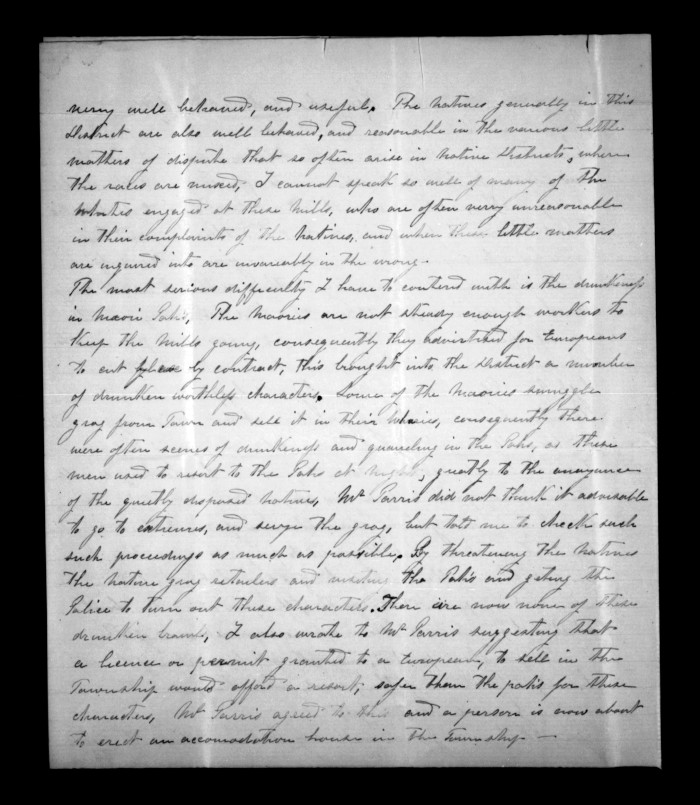 very well behaved, and useful. The natives generally in this
District are also well behaved, and reasonable in the various little
matters of dispute that so often arise in Native Districts, where
the races are mixed, I cannot speak so well of many of the
whites engaged at these Mills, who are often very unreasonable
in their complaints of the Natives, and when these little matters
are inquired into are invariably in the wrong.
The most serious difficulty I have to contend with is the drunkeness
in Maori Pahs, The Maories are not steady enough workers to
keep the Mills going, consequently they advertized for Europeans
to cut flax by contract, this brought into the District a number
of drunken worthless characters. Some of the Maories smuggle
grog from Town and sell it in their whares, consequently there
were often scenes of drunkeness and quarreling in the Pahs, as these
men used to resort to the Pahs at night, greatly to the anoyance
of the quietly disposed natives, Mr Parris did not think it advisable
to go to extremes, and seize the grog, but told me to check such
such proceedings as much as possible. By threatening the Natives
the native grog retailers and visiting the Pahs and geting the
Police to turn out these characters. There are now none of these
drunken brawls, I also wrote to Mr Parris suggesting that
a licence or permit granted to a European, to sell in the
Township would afford a resort, safer than the pahs for these
characters, Mr Parris agreed to this and a person is now about
to erect an accomodation house in the Township —